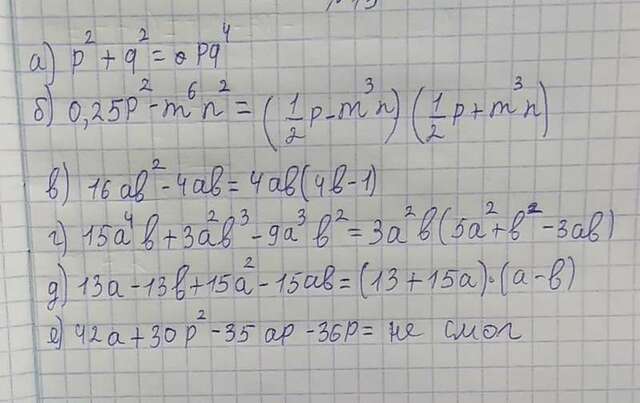 а) p² + q² = pq⁴
б) 0,25p² - m⁶n² = (1/2 p - m³n) (1/2 p + m³n)
в) 16ab² - 4ab = 4ab(4b-1)
г) 15a⁴b + 3a²b³ - 9a³b² = 3a²b(5a² + b² - 3ab)
д) 13a - 13b + 15a² - 15ab = (13 + 15a)·(a - b)
е) 42a + 30p² - 35ap - 36p = не смог